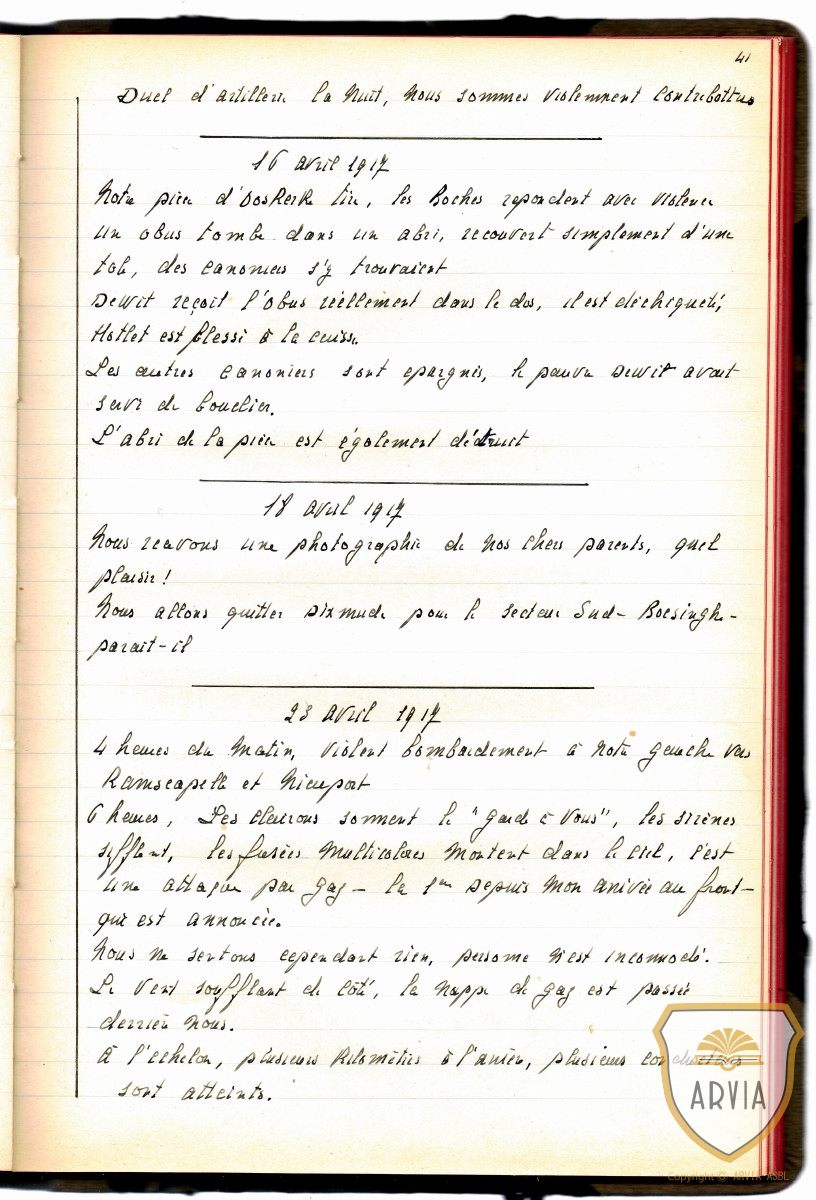 41
Duel d'artillerie la Nuit, Nous sommes violemment contrebattus
16 avril 1917
Notre pièce d'OosKerKe tire, les Boches repondent avec violence
un obus tombe dans un abri, recouvert simplement d'une
tole, des canoniers s'y trouvaient
Dewit reçoit l'obus réellement dans le dos, il est déchiqueté,
Hotlet est blessé à la cuisse.
Les autres canoniers sont epargnés, le pauvre Dewit avait
servi de bouclier.
L'abri de la pièce est également détruit
18 avril 1917
Nous recevons une photographie de nos chers parents, quel
plaisir!
Nous allons quitter Dixmude pour le secteur Sud - Boesinghe -
parait-il
23 avril 1917
4 heures du Matin, violent bombardement à notre gauche vers
Ramscapelle et Nieuport
6 heures, Les clairons sonnent le "Garde à Vous", les sirènes
sifflent, les fusées multicolores montent dans le ciel, c'est
une attaque par gaz - la 1ère depuis mon arrivée au front -
qui est annoncée.
Nous ne sentons cependant rien, personne n'est incommodé.
Le vent soufflant de côté, la nappe de gaz est passée
derrière nous.
à l'echelon, plusieurs Kilomètres à l'arrière, plusieurs conducteurs
sont atteints.
ARVIA
Copyright © ARVIA ASBL